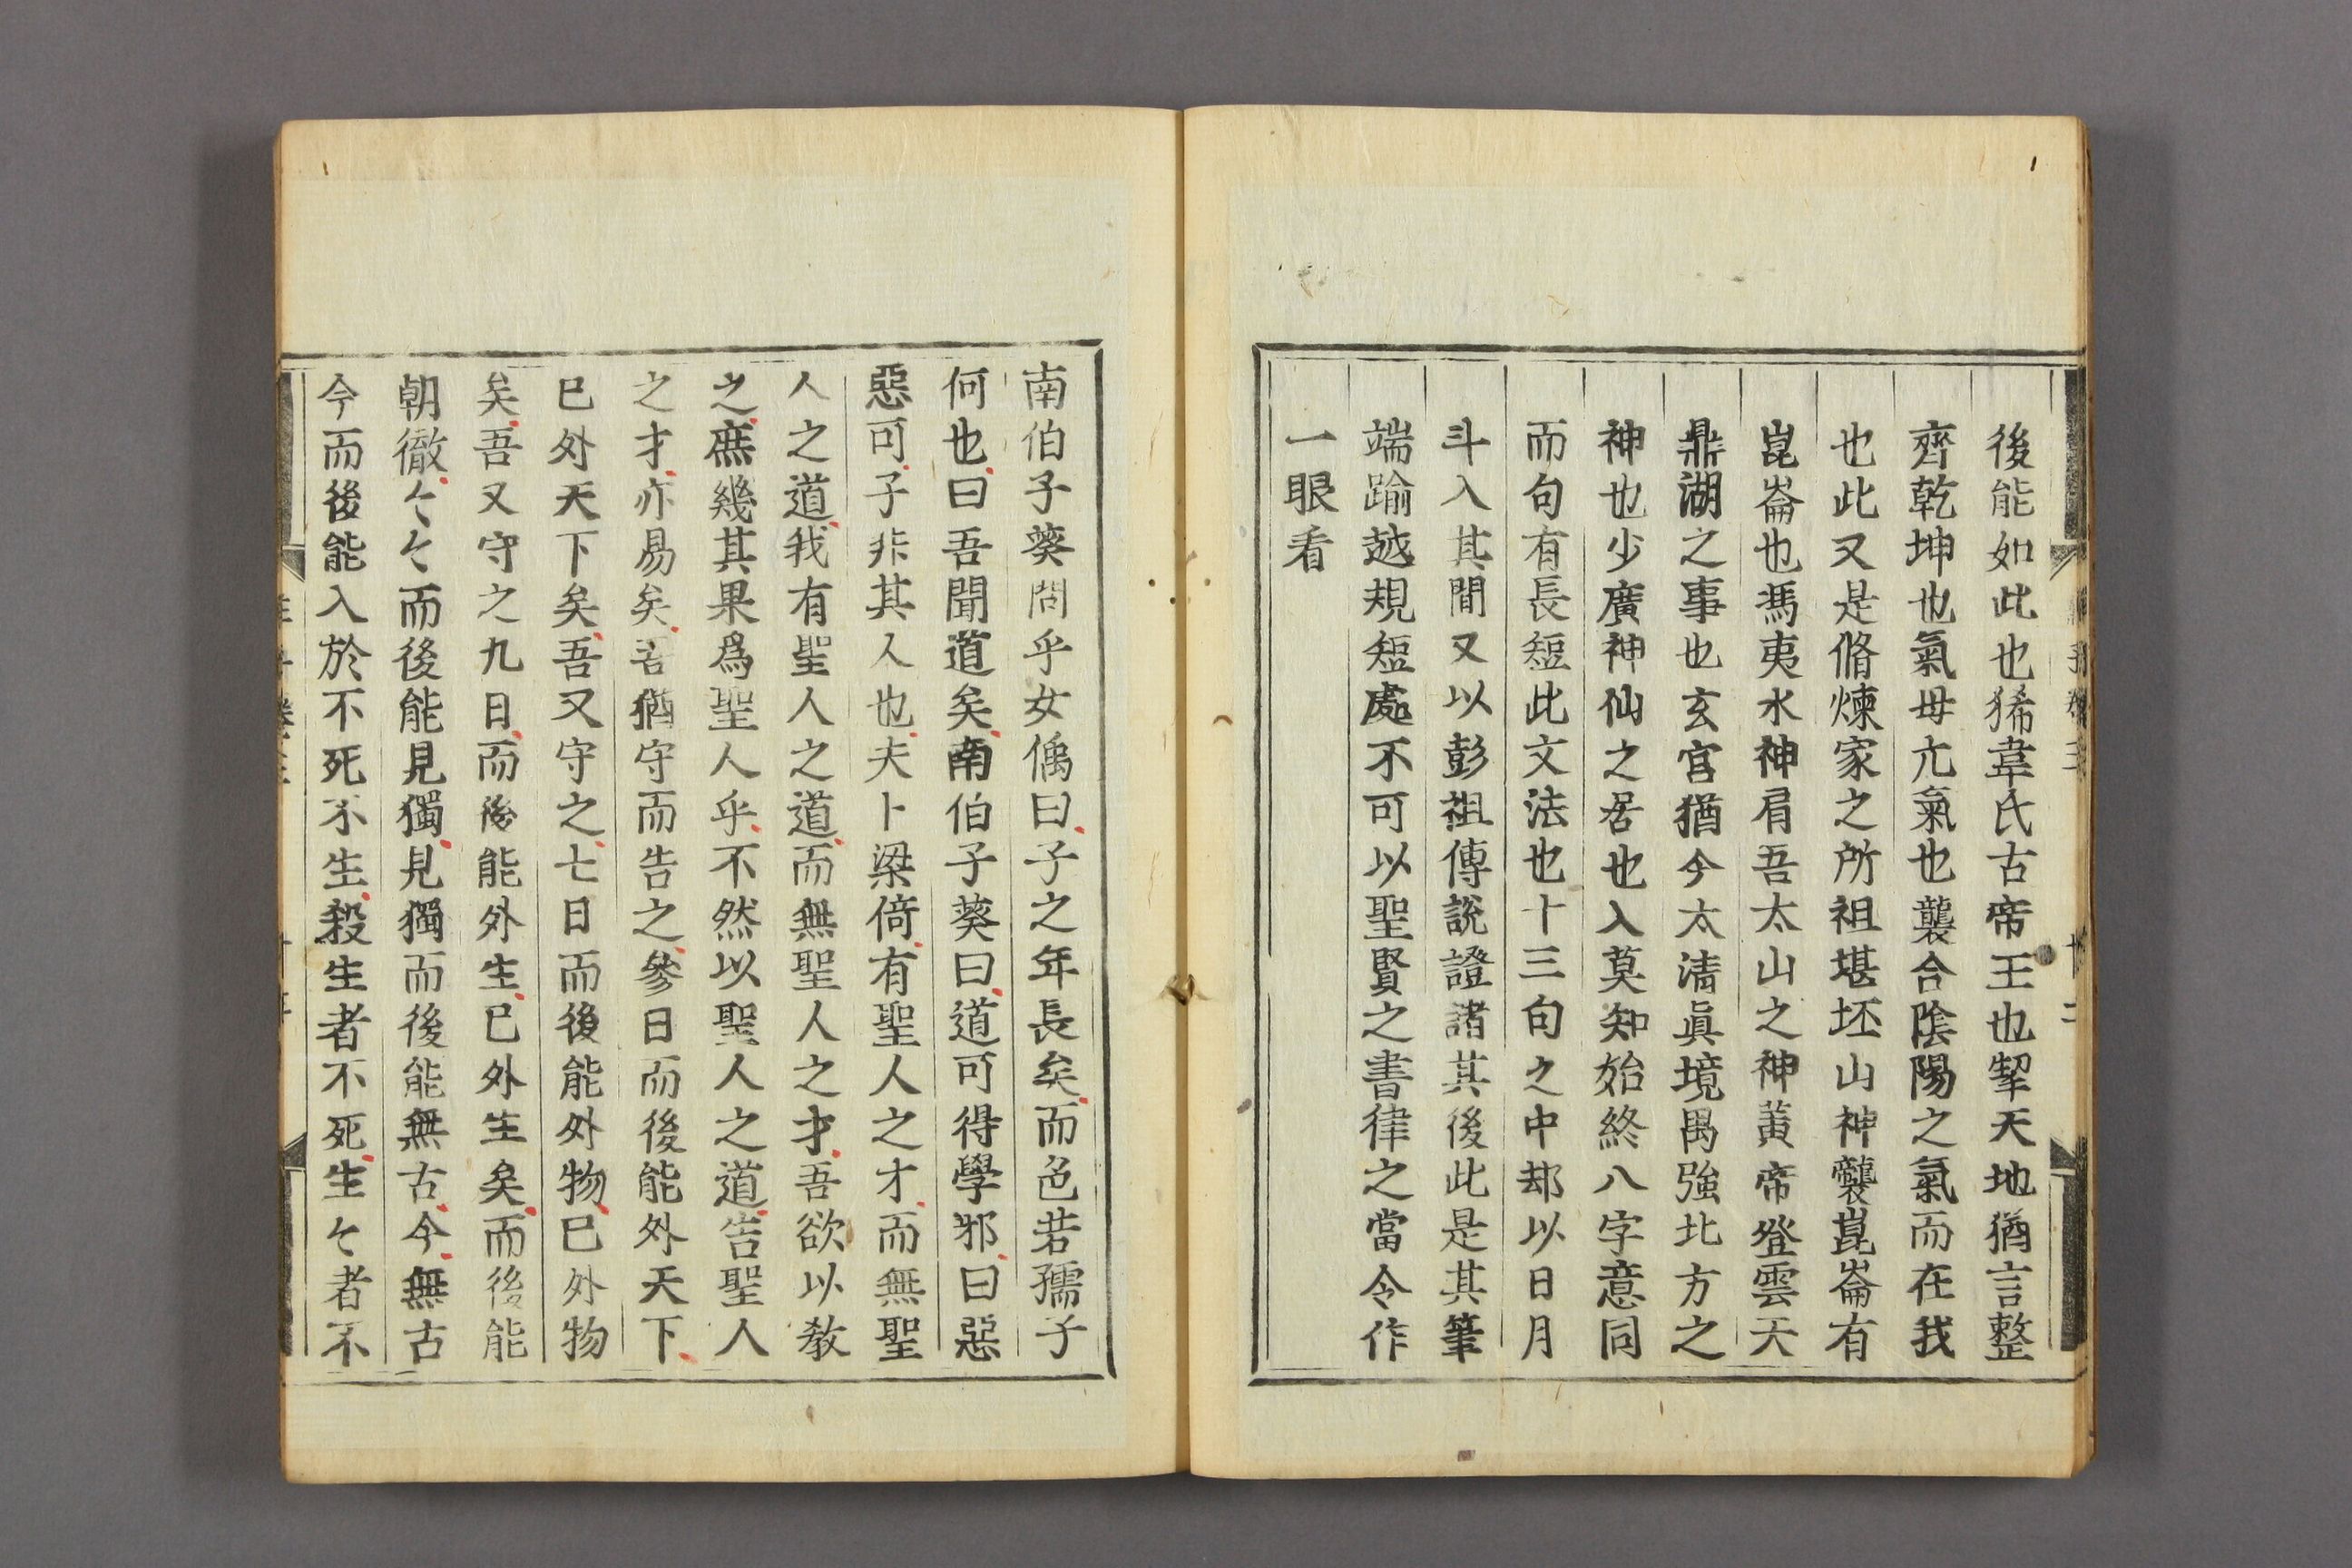 後能如此也狶韋氏古帝王也挈天地猶言整
齊乾坤也氣母亢氣也襲合陰陽之氣而在我
也此又是脩煉家之所祖堪坯山神襲崑崙有
崑崙也馮夷水神肩吾太山之神黃帝登雲天
鼎湖之事也玄宮猶今太清眞境禺強北方之
神也少廣神仙之居也入莫知始終八字意同
而句有長短此文法也十三句之中却以日月
斗入其間又以彭祖傅說證諸其後此是其筆
端踰越規短處不可以聖賢之書律之當令作
一眼看
南伯子葵問乎女偊曰子之年長矣而色若孺子
何也曰吾聞道矣南伯子葵曰道可得學邪曰惡
惡可子非其人也夫卜梁倚有聖人之才而無聖
人之道我有聖人之道而無聖人之才吾欲以教
之庶幾其果爲聖人乎不然以聖人之道告聖人
之才亦易矣吾猶守而告之參日而後能外天下
已外天下矣吾又守之七日而後能外物已外物
矣吾又守之九日而後能外生已外生矣而後能
朝徹々々而後能見獨見獨而後能無古今無古
今而後能入於不死不生殺生者不死生々者不